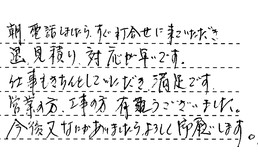 朝電話しましたら、すぐ打合せに来ていただき
見積り、対応が早いです。
仕事もきちんとしていただき満足です
営業の方、工事の方 有難うございました。
今後又なにかありましたらよろしく御願いします。